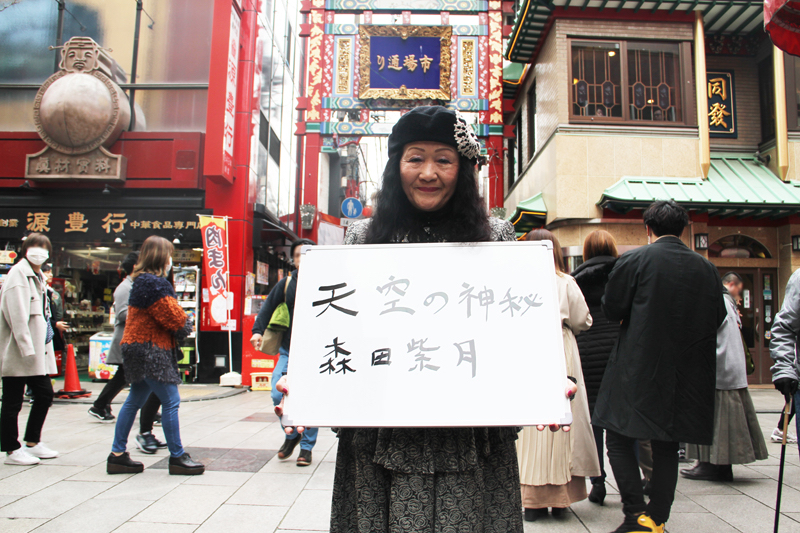 市場通り
同發
源豊行 中華食品専
肉まん
天空の神秘
森田紫月